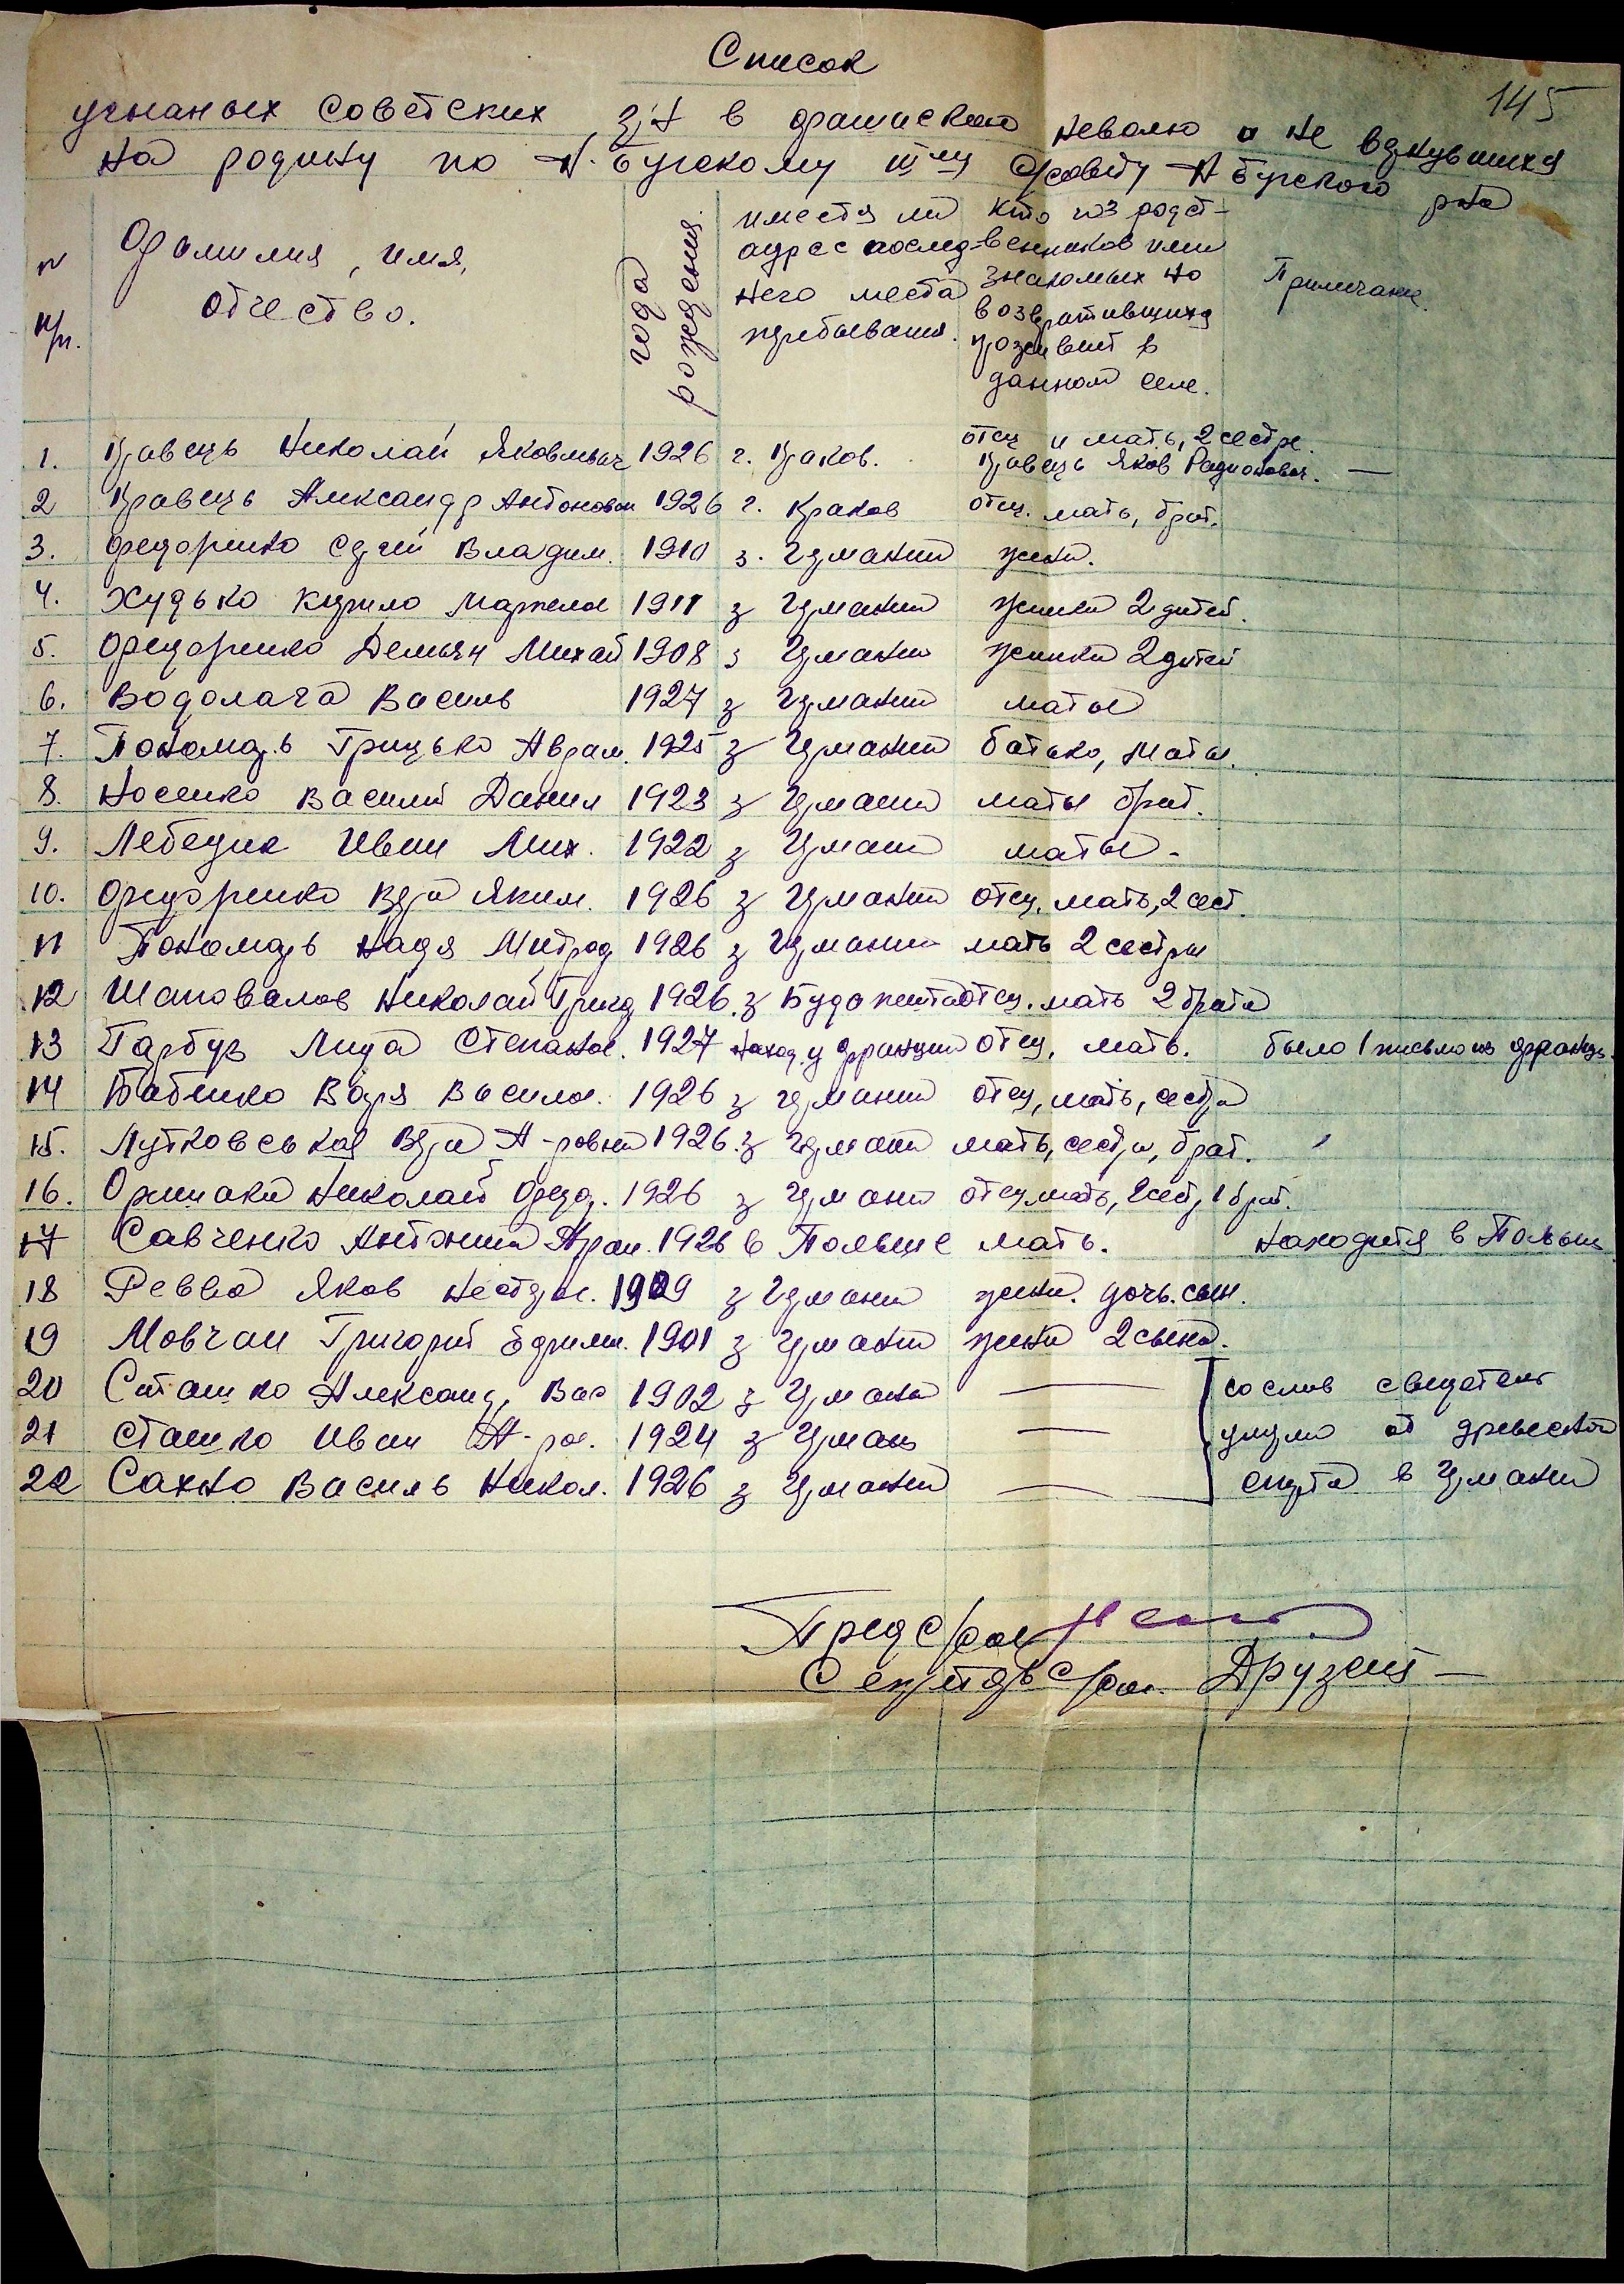 145
Список
угнаных советских гр-н в фашискою неволю и не вернувшихся
на родину по Н. Бугскому с/совету Н Бугского р-на
№ п/п.
Фамилия, имя, отчество.
года рождения.
имеется ли адрес последнего места пребывания.
кто из родственников или знакомых не возвратившихся проживает в данном селе.
Примечание.
1. Кравець Николай Яковлевич 1926 г. Краков. отец и мать, 2 сестре. Кравець Яков Радионович. —
2 Кравець Александр Антонович 1926 г. Краков отец. мать, брат.
3. Федоренко Сергей Владим. 1910 з. Германии жена.
4. Худько Кирило 1911 з Германии жинка 2 детей.
5. Федоренко Демьян Михай 1908 з Германии жинка 2 детей
6. Водолага Василь 1927 з Германии маты
7. Пономарь Грицько Аврам. 1925 з Германии батько, маты.
8. Носенко Василий Данил 1923 з Германии маты брат.
9. Лебедик Иван Мих. 1922 з Германии маты.
10. Федоренко Вера Яким. 1926 з Германии отец, мать, 2 сест.
11 Пономарь Надя Митроф 1926 з Германии мать 2 сестры
12 Шаповалов Николай Григ 1926 з Будапешта отец. мать 2 брата
13 Гарбуз Лида Степанов. 1927 наход. у Франции отец, мать. было 1 письмо из Франции.
14 Бабенко Варя Василов. 1926 з Германии отец, мать, сестра
15. Лутковськая Вера А-ровна 1926 з Германии мать, сестра, брат.
16. Николай Федор. 1926 з Германии отец мать, 2 сест, 1 брат.
17 Савченко Антонина 1926 в Польше мать. находится в Польше
18 Ревва Яков Нестеров. 1909 з Германии жена. дочь. сын.
19 Мовчан Григорий Ефрим. 1901 з Германии жена 2 сына.
20 Сташко Александ, Вас 1902 з Германии — со слов свидетелей
21 Сташко Иван А-ров. 1924 з Германии — умерли от древесного
22 Сахно Василь Никол. 1926 з Германии — спирта в Германии
Пред с/сов
Секретарь с/сов.